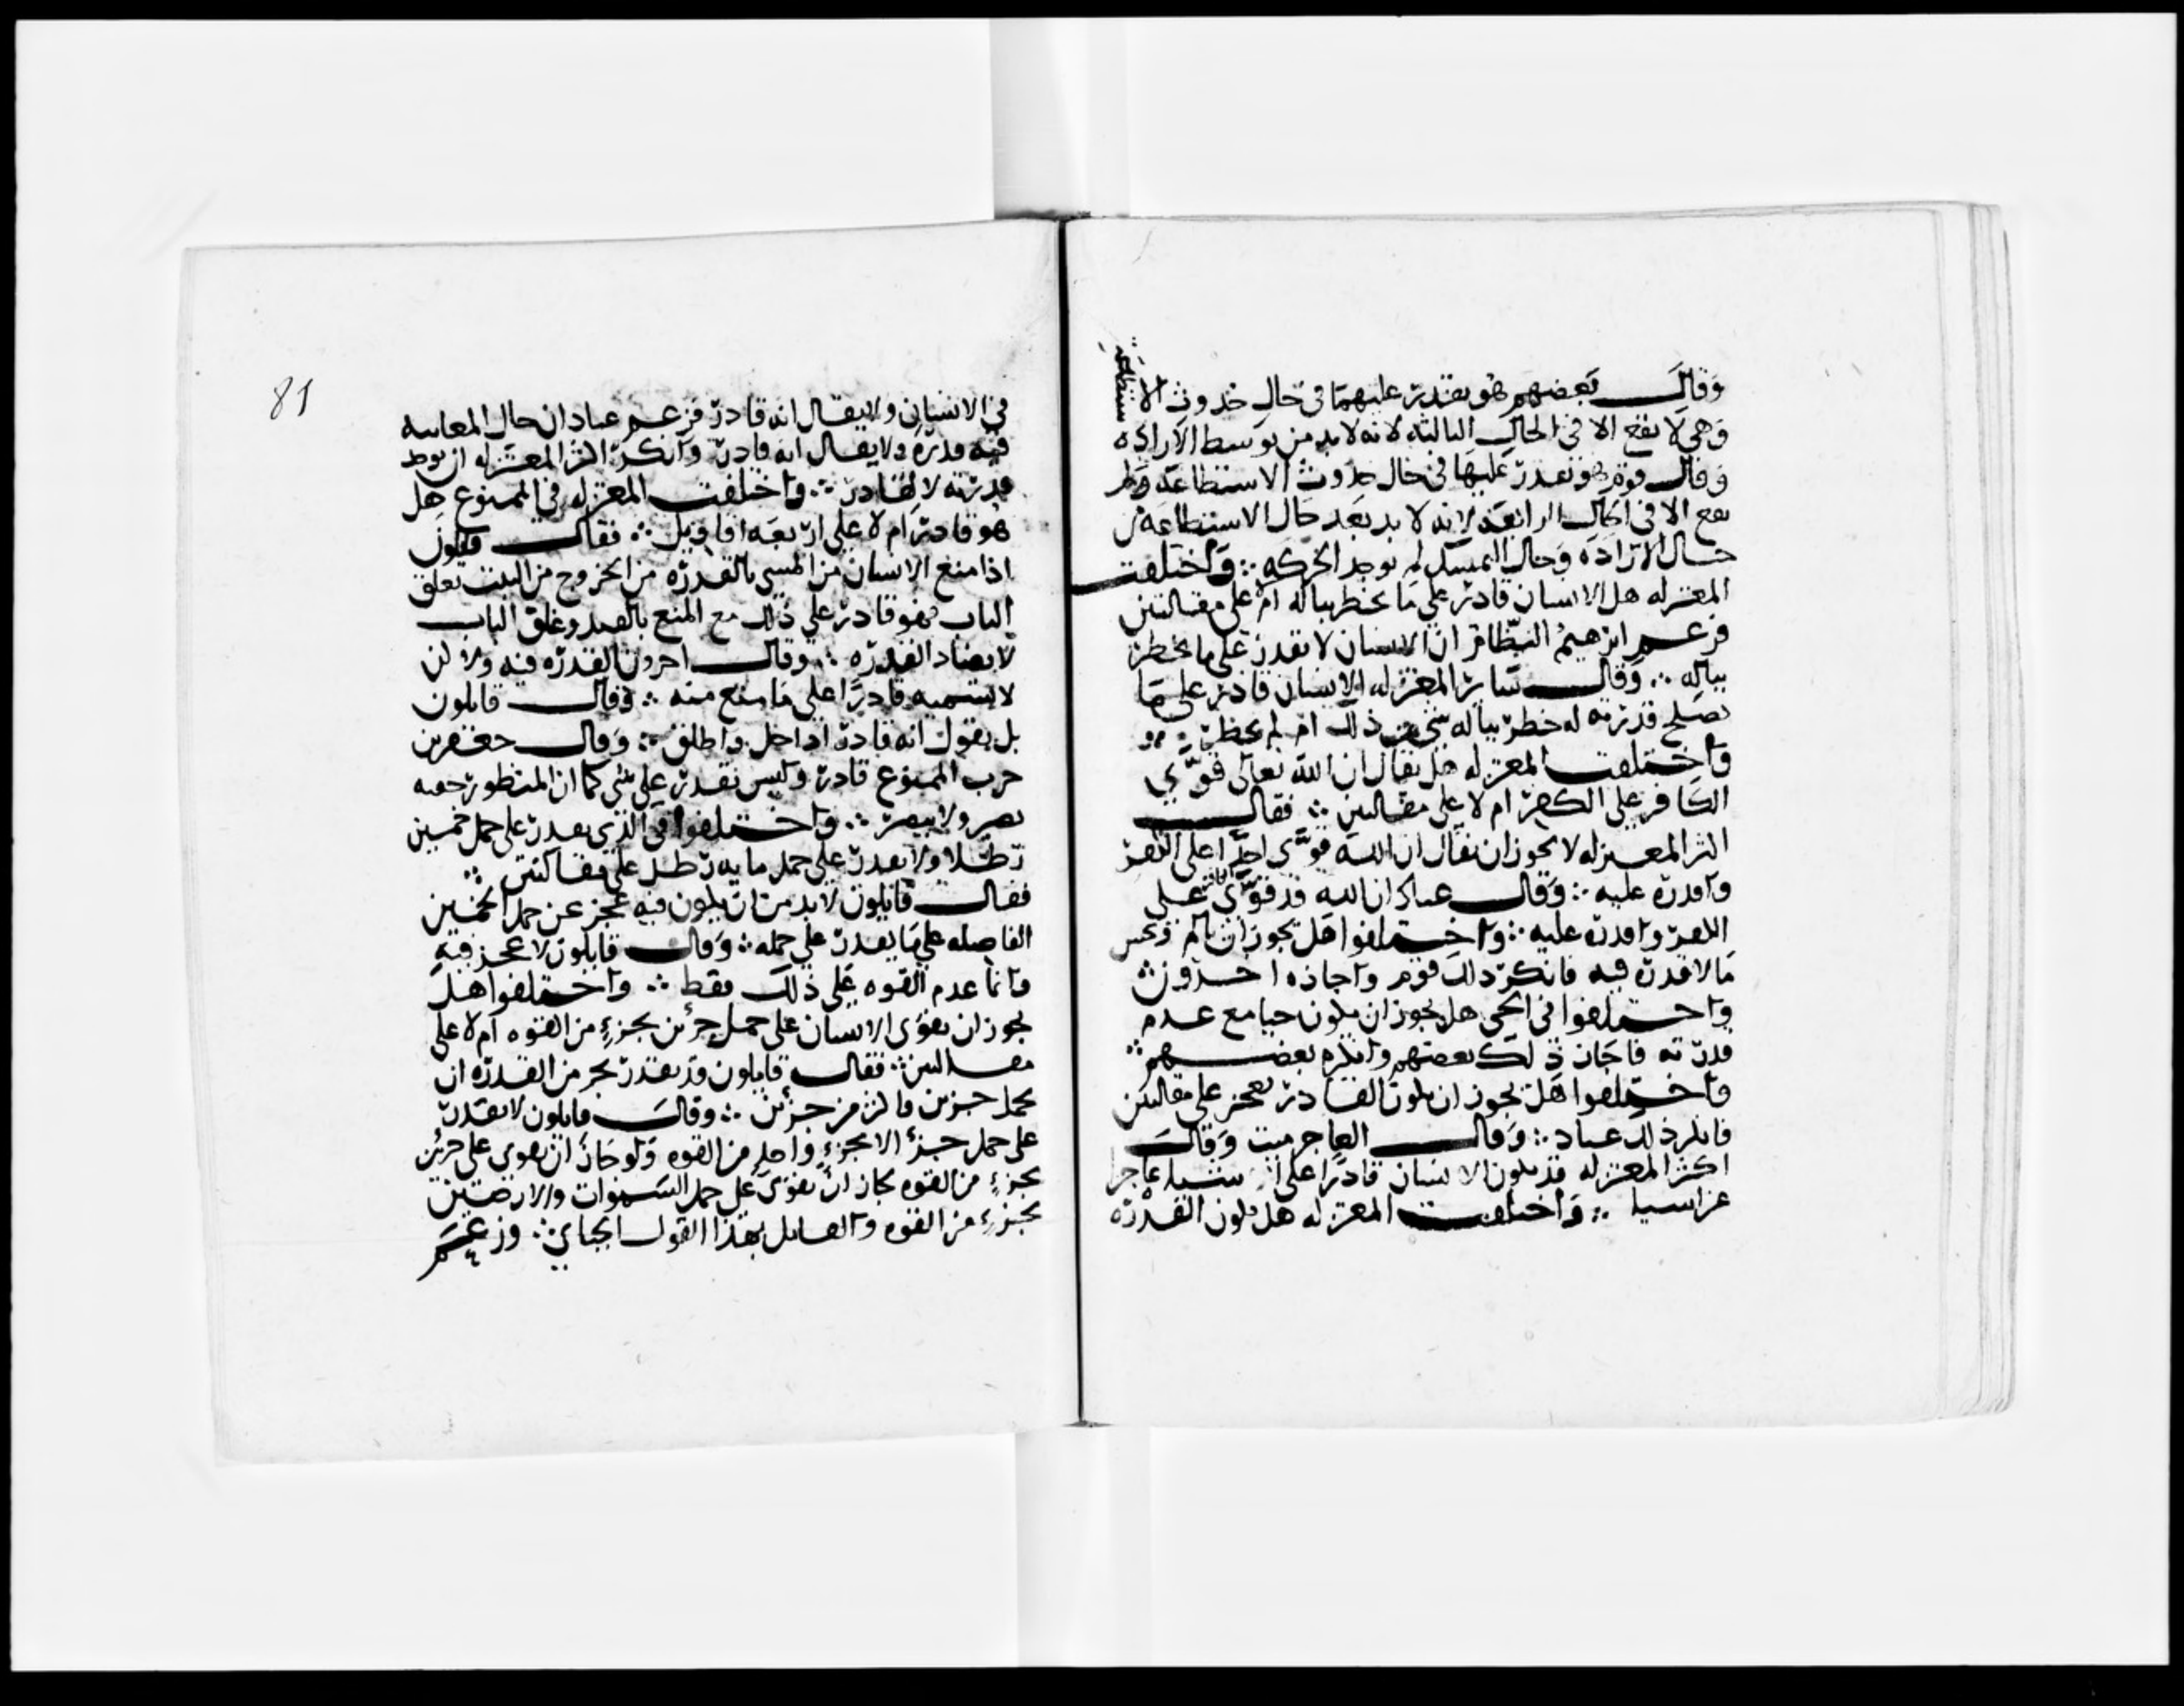 وقال بعضهم هو يقدر عليهما في حال حدوث الاستطاعة
وهي لا تقع الا في الحال الثالثة لانه لا بد من توسط الارادة
وقال قوم هو يقدر عليها في حال حدوث الاستطاعة
يقع الا في الحال الرابعة لانه لا بد بعد حال الاستطاعة من
حال الارادة وحال التمثيل ثم توجد الحركه ∴ واختلفت
المعتزله هل الانسان قادر على ما يخطر بباله ام لا على مقالتين
فزعم ابرهيم النظام ان الانسان لا يقدر على ما لا يخطر
بباله ∴ وقال سائر المعتزله الانسان قادر على ما
تصلح قدرته له خطر بباله شي من ذلك ام لم يخطر
واختلفت المعتزله هل يقال ان الله تعالى قوّى
الكافر على الكفر ام لا على مقالتين ∴ فقال
اكثر المعتزله لا يجوز ان يقال ان الله قوّى احدا على الكفر
واقدره عليه ∴ وقال عباد ان الله قد قوّى الكافر على
الكفر واقدره عليه ∴ واختلفوا هل يجوز ان يالم ويحس
ما لا قدرة فيه فانكر ذلك قوم واجازه اخرون
واختلفوا في الحي هل يجوز ان يكون حيا مع عدم
قدرته فاجاز ذلك بعضهم وانكره بعضهم ∴
واختلفوا هل يجوز ان يكون القادر يعجز على مقالتين
فانكر ذلك عباد ∴ وقال العاجز ميت وقال
اكثر المعتزله قد يكون الانسان قادرا على اشيا عاجزا
عن اشيا ∴ واختلفت المعتزله هل تكون القدرة
81
في الانسان ولا يقال انه قادر فزعم عباد ان حال المعاينة
فيه قدرة ولا يقال انه قادر وانكر اكثر المعتزله ان توجد
قدرته لا لقادر ∴ واختلفت المعتزله في الممنوع هل
هو قادر ام لا على اربعة اقاويل ∴ فقال قائلون
اذا منع الانسان من المشي بالقيد ومن الخروج من البيت بغلق
الباب فهو قادر على ذلك مع المنع بالقيد وغلق الباب
لا يضاد القدره ∴ وقال اخرون القدره فيه ولا لكن
لا نسميه قادرا على ما منع منه ∴ وقال قائلون
بل نقول انه قادر اذا حل واطلق ∴ وقال جعفر بن
حرب الممنوع قادر وليس يقدر على شي كما ان المنطبق جفنه
بصير ولا يبصر ∴ واختلفوا في الذي يقدر على حمل خمسين
رطلا ولا يقدر على حمل مايه رطل على مقالتين ∴
فقال قائلون لا بد من ان يكون فيه عجز عن حمل الخمسين
الفاضله على ما يقدر على حمله ∴ وقال قائلون لا عجز فيه
وانما عدم القوه على ذلك فقط ∴ واختلفوا هل
يجوز ان يقوى الانسان على حمل جزئين بجزء من القوه ام لا على
مقالتين ∴ فقال قائلون قد يقدر بجزء من القدره ان
يحمل جزئين واكثر من جزئين ∴ وقال قائلون لا يقدر
على حمل جزء الا بجزء واحد من القوه ولو جاز ان يقوى على جزئين
بجزء من القوه لجاز ان يقوى على حمل السموات والارضين
بجزء من القوه والقائل بهذا القول الجبائي ∴ وزعم